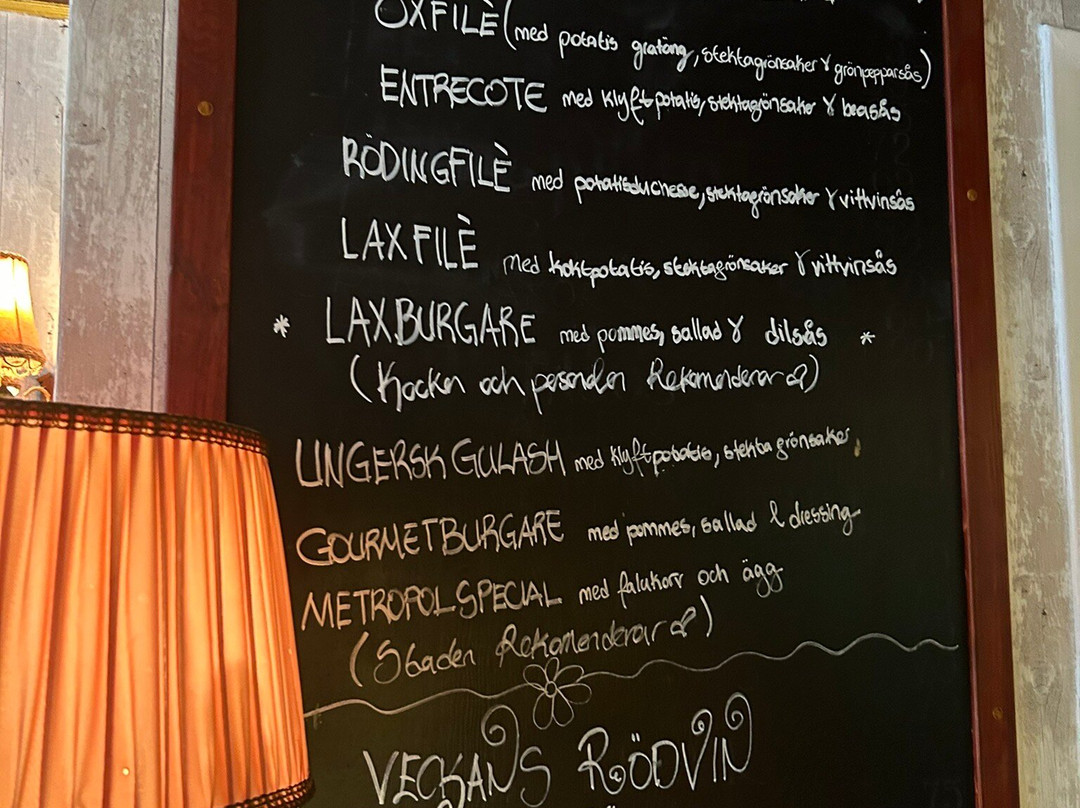 OXFILÈ (med potatis gratäng, stektagrönsaker & grönpepparsås)
ENTRECOTE med klyftpotatis, stektagrönsaker & beasås
RÖDINGFILÈ med potatisduchesse, stektagrönsaker & vittvinsås
LAXFILÈ med koktpotatis, stektagrönsaker & vittvinsås
* LAXBURGARE med pommes, sallad & dilsås *
(Kocken och personalen Rekomenderar)
UNGERSK GULASH med klyftpotatis, stekta grönsaker
GOURMETBURGARE med pommes, sallad & dressing
METROPOLSPECIAL med falukorv och ägg
(Staden Rekomenderar)
VECKANS RÖDVIN